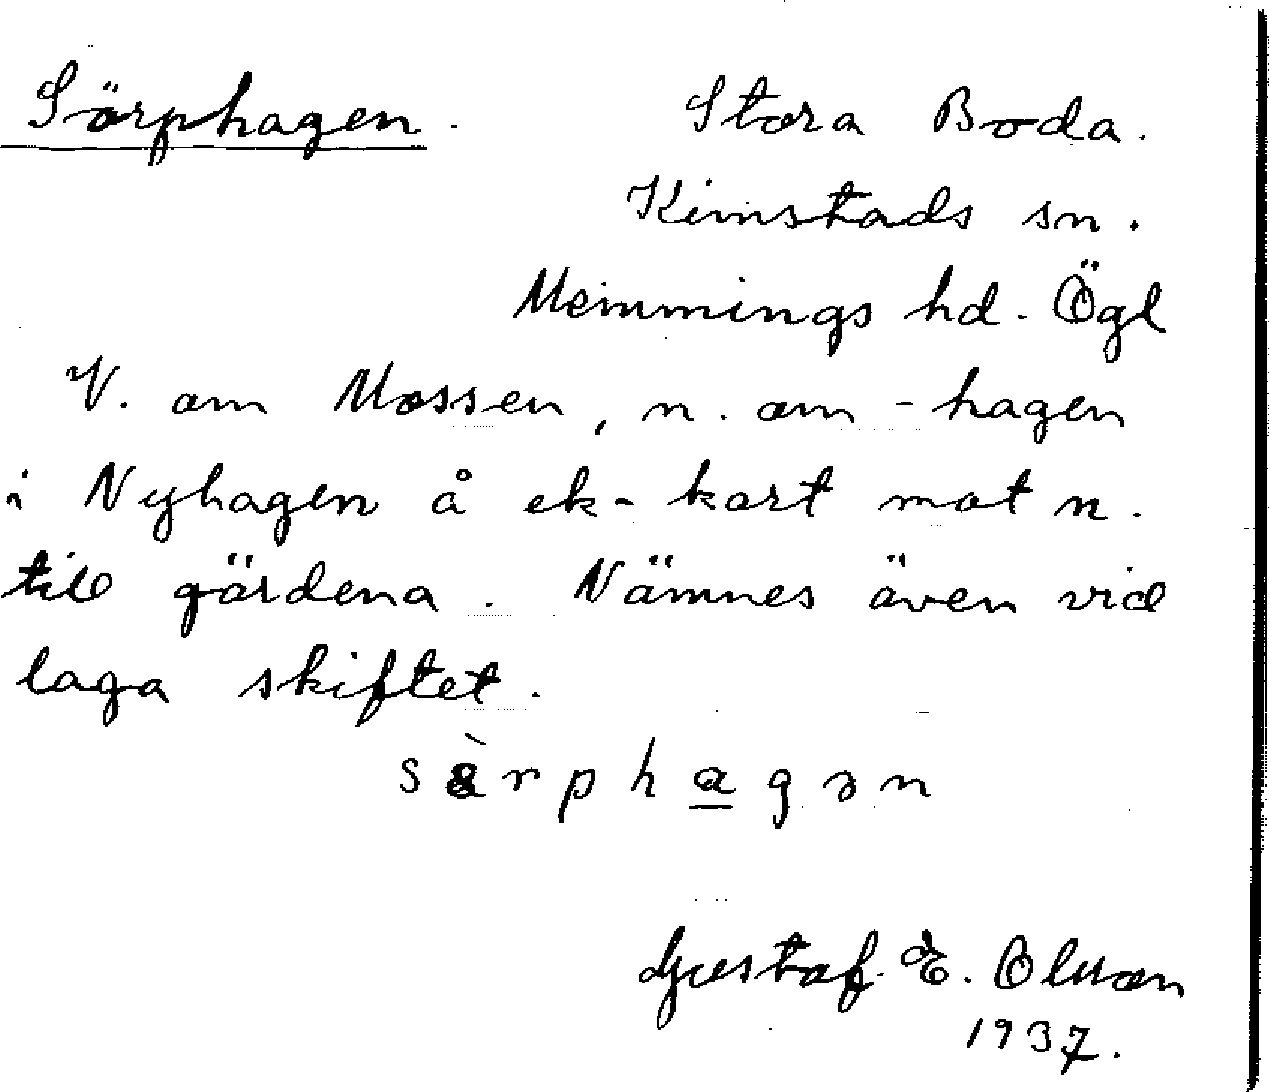 Sörphagen. Stora Boda.
Kimstads sn.
Memmings hd. Ögl
V. om Mossen, n. om -hagen
i Nyhagen å ek-kart mot n.
till gärdena. Nämnes även vid
laga skiftet.
sàrphagən
Gustaf E. Olsson
1937.